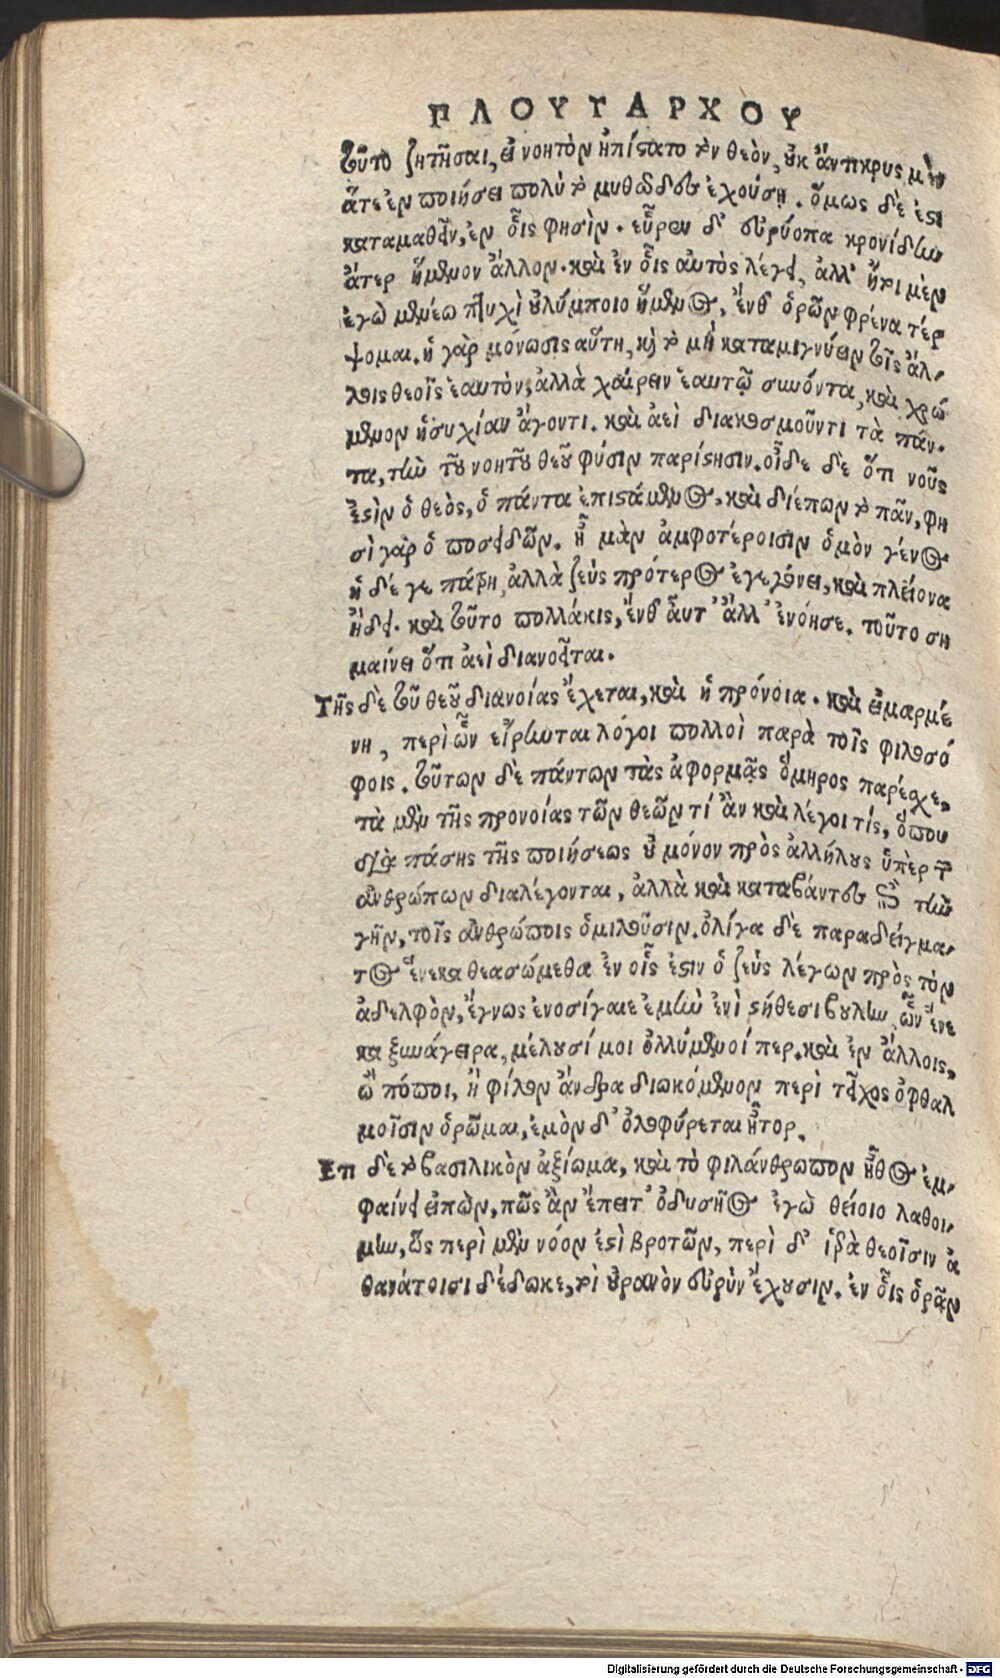 ΠΛΟΥΤΑΡΧΟΥ
τοῦτο ζητῆσαι, εἰ νοητὸν ἠπίστατο τὸν θεὸν, οὐκ ἄντικρυς μὲν
ἅτε ἐν ποιήσει πολὺ τὸ μυθῶδες ἐχούσῃ. ὅμως δὲ ἐστι
καταμαθεῖν, ἐν οἷς φησὶν. εὗρεν δ' εὐρύοπα κρονίδην
ἄτερ ἥμενον ἄλλον. καὶ ἐν οἷς αὐτὸς λέγει, ἀλλ' ἤτοι μὲν
ἐγὼ μενέω πτυχὶ οὐλύμποιο ἥμενος, ἔνθ' ὁρῶν φρένα τέρ
ψομαι. ἡ γὰρ μόνωσις αὕτη, καὶ τὸ μὴ καταμιγνύειν τοῖς ἄλ,
λοις θεοῖς ἑαυτὸν, ἀλλὰ χαίρειν ἑαυτῷ συνόντα, καὶ χρώ
μενον ἡσυχίαν ἄγοντι. καὶ ἀεὶ διακοσμοῦντι τὰ πάν,
τα, τὴν τοῦ νοητοῦ θεοῦ φύσιν παρίστησιν. οἶδε δὲ ὅτι νοῦς
ἐστὶν ὁ θεὸς, ὁ πάντα ἐπιστάμενος, καὶ διέπων τὸ πᾶν, φη
σὶ γὰρ ὁ ποσειδῶν. ἦ μὰν ἀμφοτέροισιν ὁμὸν γένος
ἠ δέ γε πάτρη, ἀλλὰ ζεὺς πρότερος ἐγεγόνει, καὶ πλείονα
ᾔδει. καὶ τοῦτο πολλάκις, ἔνθ' αὖτ' ἄλλ' ἐνόησε. τοῦτο ση
μαίνει ὅτι ἀεὶ διανοεῖται.
Τῆς δὲ τοῦ θεοῦ διανοίας ἔχεται, καὶ ἡ πρόνοια. καὶ εἱμαρμέ
νη, περὶ ὧν εἴρηνται λόγοι πολλοὶ παρὰ τοῖς φιλοσό
φοις. τούτων δὲ πάντων τὰς ἀφορμὰς ὅμηρος παρέσχε,
τὰ μὲν τῆς προνοίας τῶν θεῶν τί ἂν καὶ λέγοι τίς, ὅπου
διὰ πάσης τῆς ποιήσεως οὐ μόνον πρὸς ἀλλήλους ὑπὲρ τῶν
ἀνθρώπων διαλέγονται, ἀλλὰ καὶ καταβάντες ἐπὶ τὴν
γῆν, τοῖς ἀνθρώποις ὁμιλοῦσιν. ὀλίγα δὲ παραδείγμα,
τος ἕνεκα θεασώμεθα ἐν οἷς ἐστιν ὁ ζεὺς λέγων πρὸς τὸν
ἀδελφὸν, ἔγνως ἐνοσίγαιε ἐμὴν ἐνὶ στήθεσι βουλὴν, ὧν ἕνε
κα ξυνάγειρα, μέλουσί μοι ὀλλύμενοί περ. καὶ ἐν ἄλλοις,
ὢ πόποι, ἦ φίλον ἄνδρα διωκόμενον περὶ τεῖχος ὀφθαλ
μοῖσιν ὁρῶμαι, ἐμὸν δ' ὀλοφύρεται ἦτορ.
Ετι δὲ τὸ βασιλικὸν ἀξίωμα, καὶ τὸ φιλάνθρωπον ἦθος ἐμ,
φαίνει εἰπὼν, πῶς ἂν ἔπειτ' ὀδυσῆος ἐγὼ θείοιο λαθοί,
μην, ὃς περὶ μὲν νόον ἐστὶ βροτῶν, περὶ δ' ἱρὰ θεοῖσιν ἀ
θανάτοισι δέδωκε, τοὶ οὐρανὸν εὐρὺν ἔχουσιν. ἐν οἷς ὁρᾷν
Digitalisierung gefördert durch die Deutsche Forschungsgemeinschaft - DFG